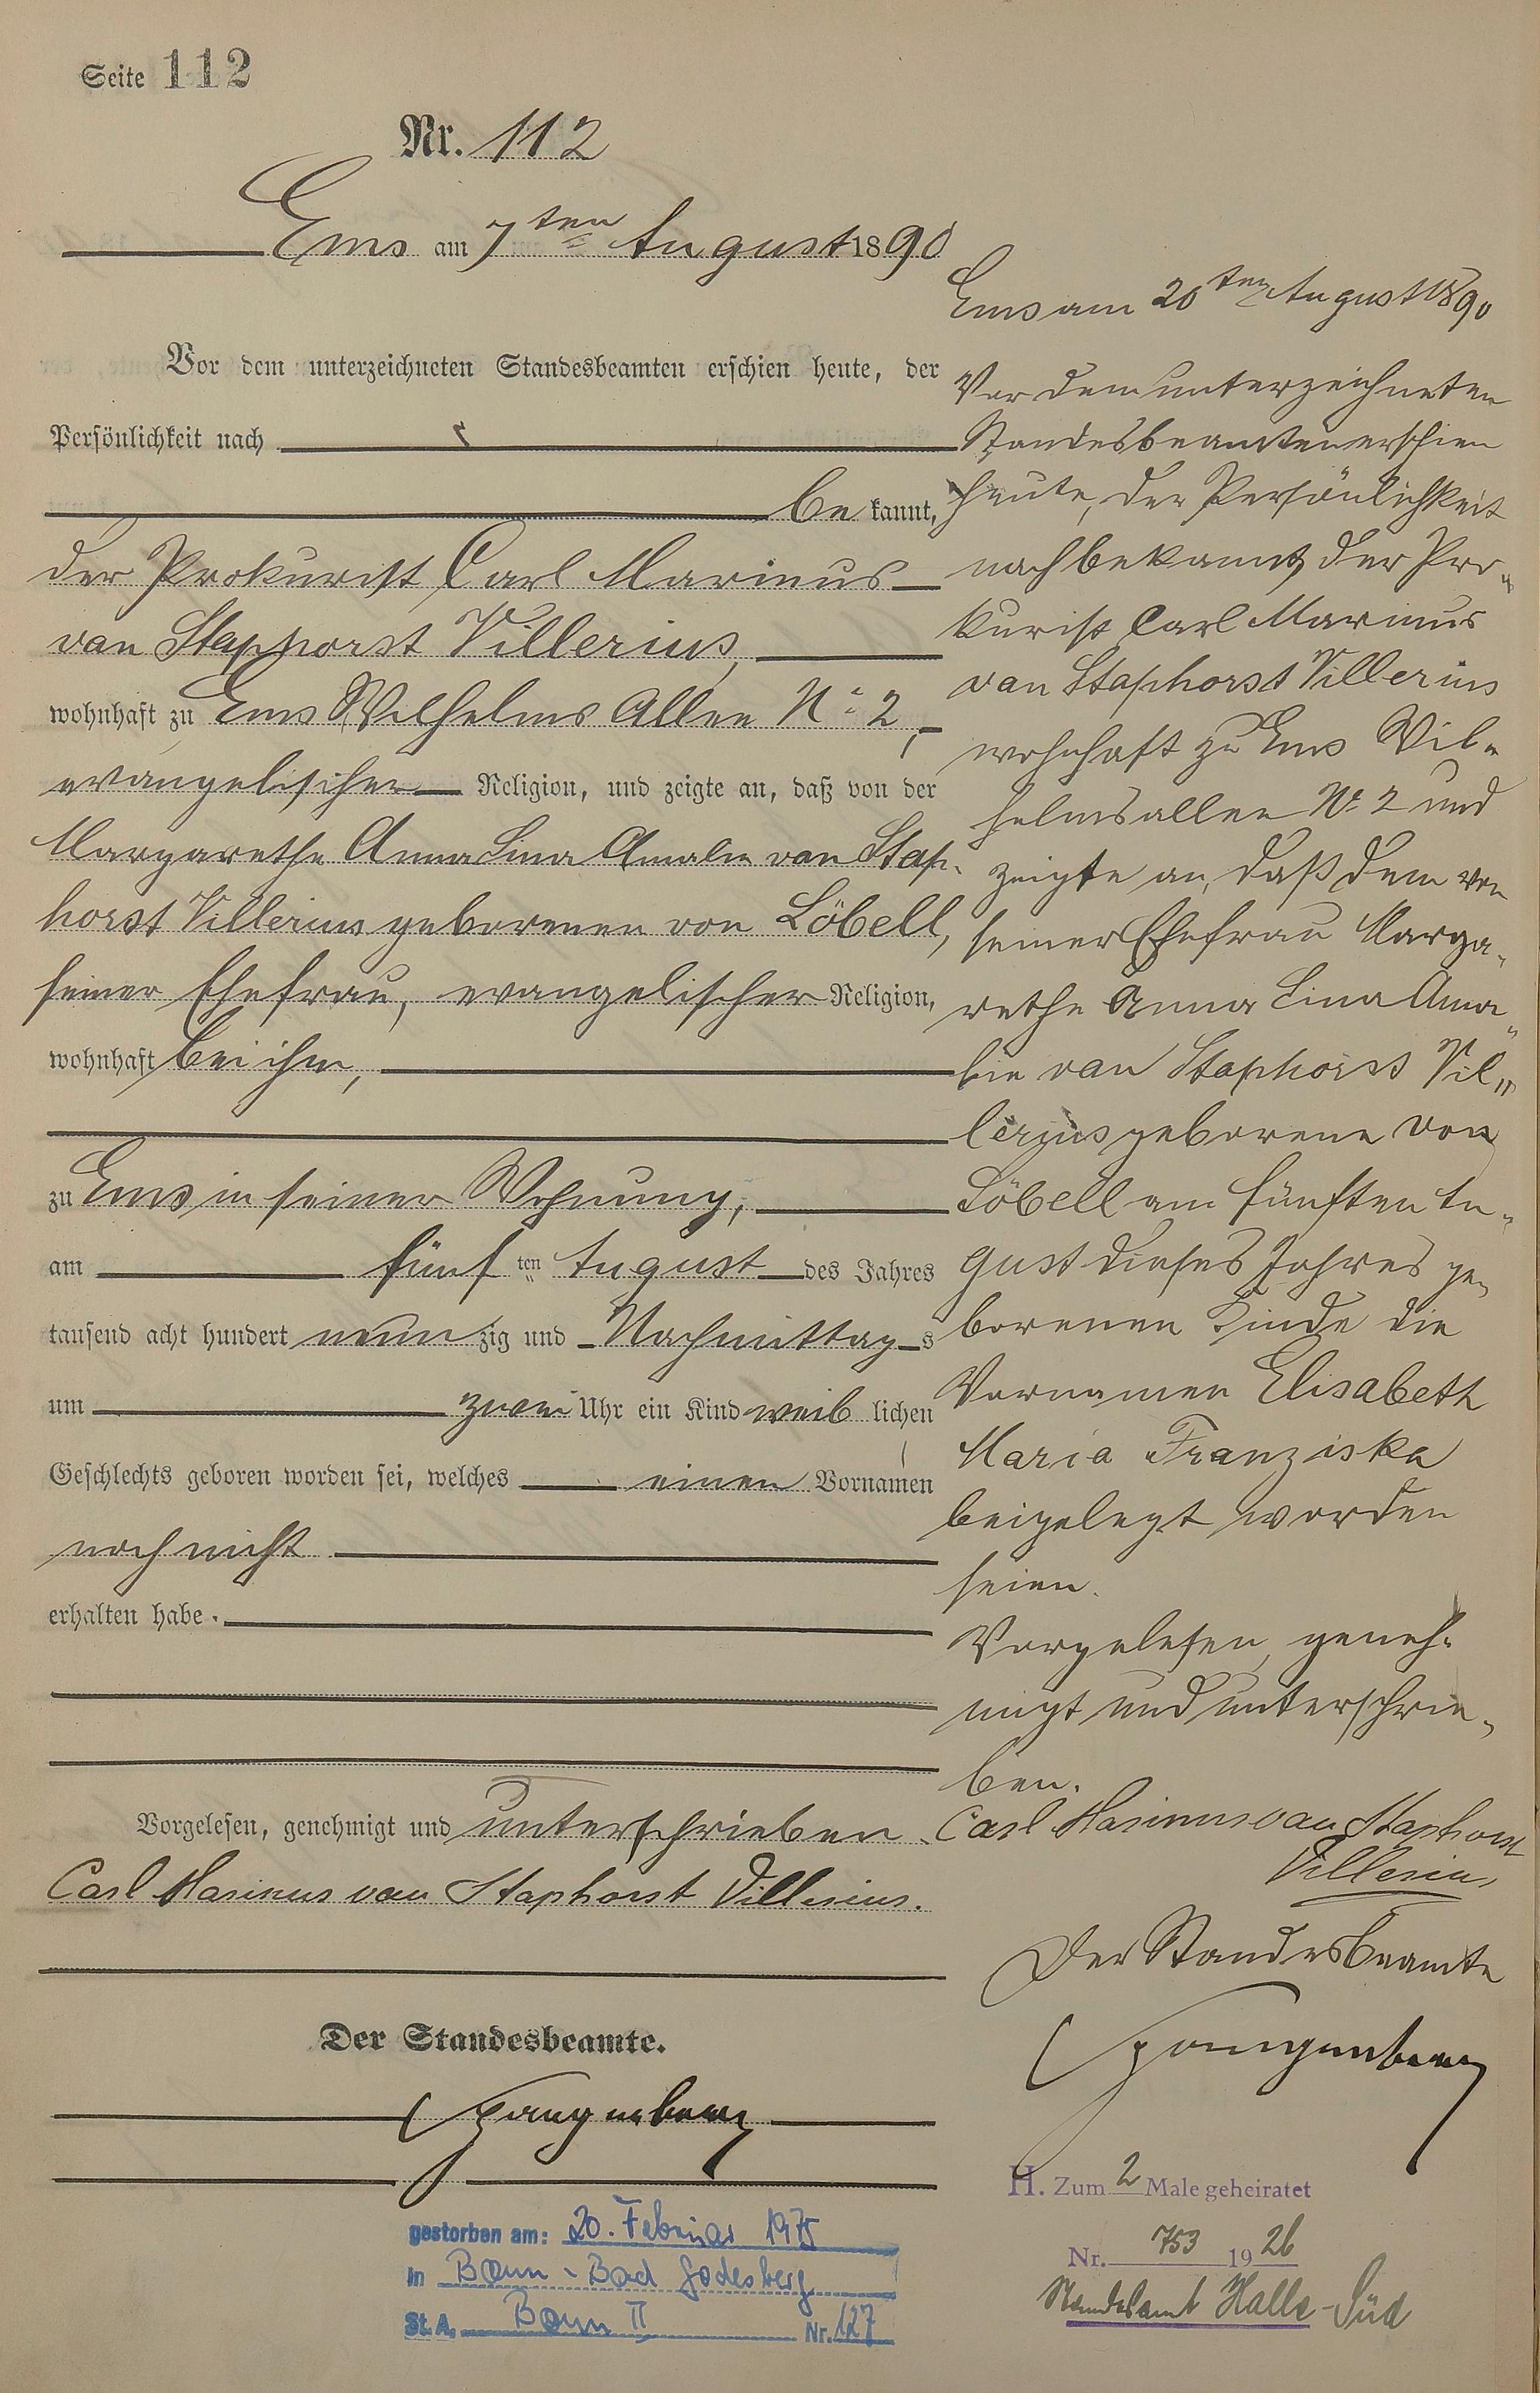 Seite 112
Nr. 112
Ems am 7ten August 1890
Vor dem unterzeichneten Standesbeamten erschien heute, der
Persönlichkeit nach
be kannt,
der Prokurist, Carl Marinus
van Staphorst Villerius,
wohnhaft zu Ems Wilhelms Allee No 2,
evangelischer Religion, und zeigte an, daß von der
Margarethe Anna Lina Amalie van Stap-
horst Villerius geborenen von Löbell,
seiner Ehefrau, evangelischer Religion,
wohnhaft bei ihm,
zu Ems in seiner Wohnung,
am fünf ten August des Jahres
tausend acht hundert neun zig und Nachmittag s
um zwei Uhr ein Kind weib lichen
Geschlechts geboren worden sei, welches einen Vornamen
noch nicht
erhalten habe.
Vorgelesen, genehmigt und unterschrieben.
Carl Marinus van Staphorst Villerius.
Der Standesbeamte.
gestorben am: 20. Februar 1975
in Bonn - Bad Godesberg
St. A. Bonn II Nr. 127
Ems am 20ten August 1890
Vor dem unterzeichneten
Standesbeamten erschien
heute, der Persönlichkeit
nach bekannt, der Pro-
kurist Carl Marinus
van Staphorst Villerius
wohnhaft zu Ems Wil-
helmsallee No 2 und
zeigte an, daß dem von
seiner Ehefrau Marga-
rethe Anna Lina Ama-
lie van Staphorst Vil-
lerius geborene von
Löbell am fünften Au-
gust dieses Jahres ge-
borenen Kinde die
Vornamen Elisabeth
Maria Franziska
beigelegt worden
seien.
Vorgelesen, geneh-
migt und unterschrie-
ben.
Carl Marinus van Staphorst
Villerius
Der Standesbeamte
H. Zum 2 Male geheiratet
Nr. 753 1926
Standesamt Halle-Süd